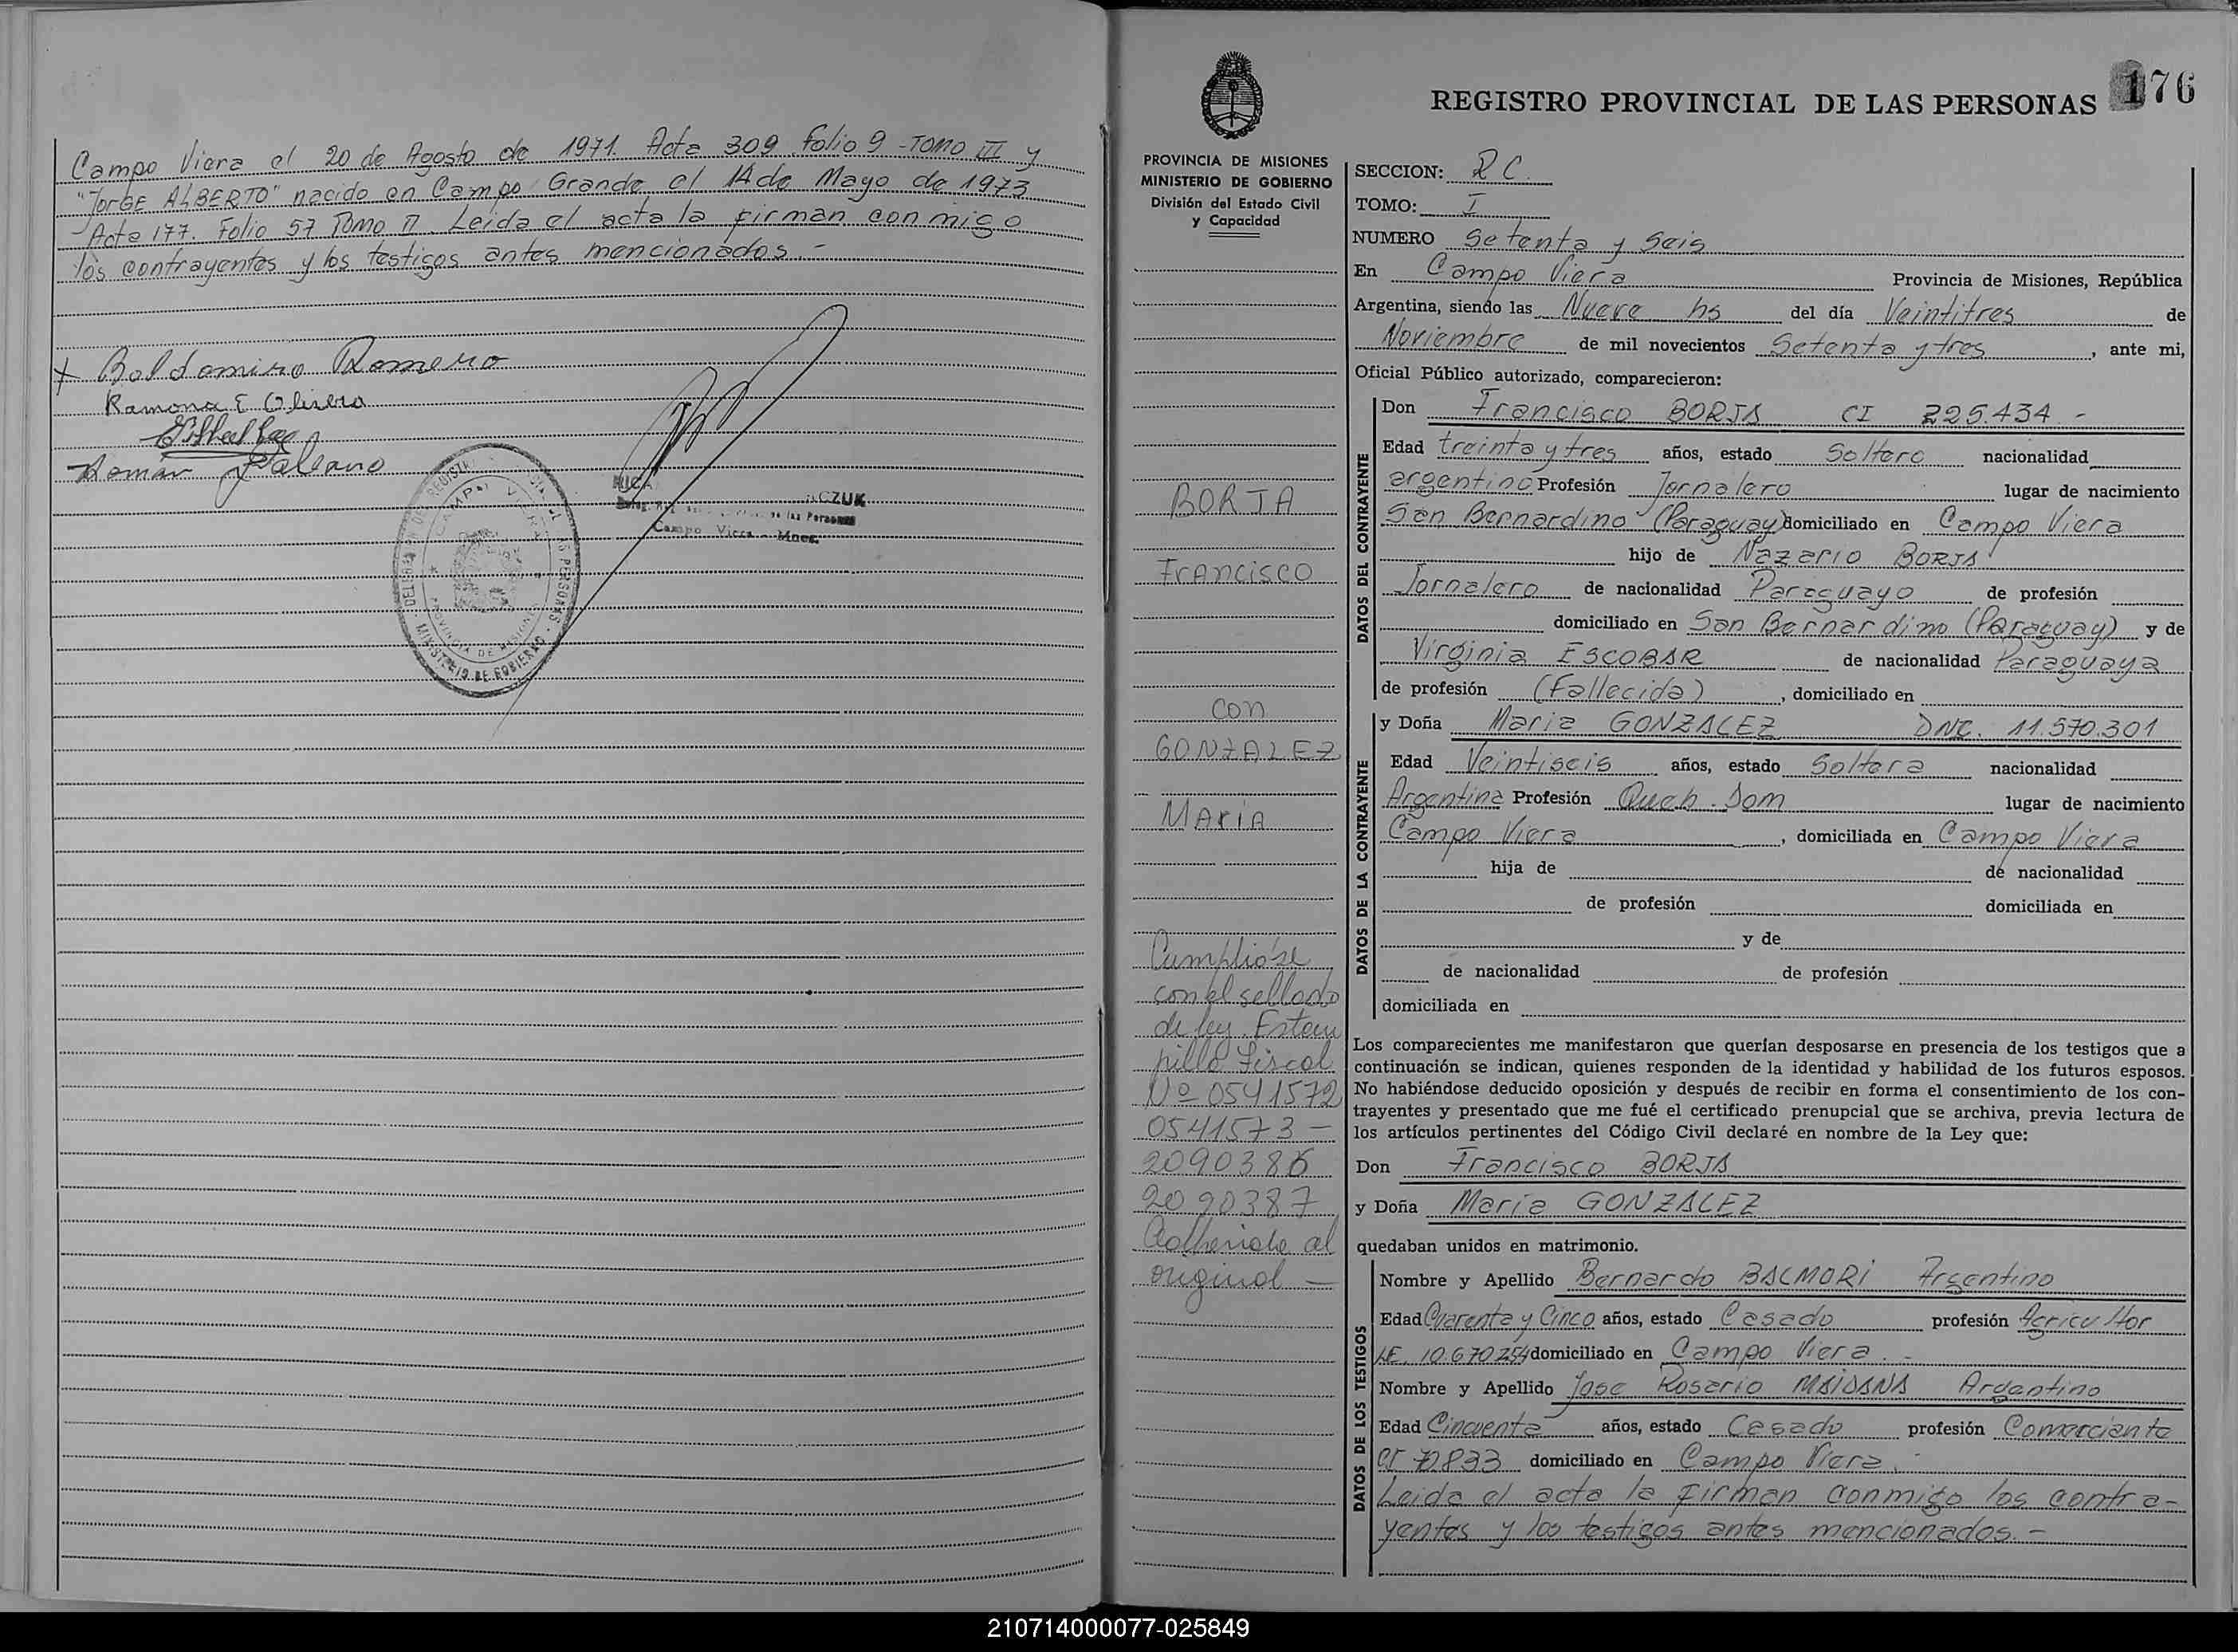 Campo Viera el 20 de Agosto de 1971. Acta 309 Folio 9 - TOMO III y
"JorGE ALBERTO" nacido en Campo Grande el 14 de Mayo de 1973
Acta 177. Folio 57 Tomo II. Leida el acta la firman conmigo
los contrayentes y los testigos antes mencionados. -
Baldomiro Romero
Ramona E Olivera
Roman
CZUK
de las Personas
Campo Viera - Mnes.
CAMPO VIERA
PROVINCIA DE MISIONES
MINISTERIO DE GOBIERNO
176
REGISTRO PROVINCIAL DE LAS PERSONAS
PROVINCIA DE MISIONES
MINISTERIO DE GOBIERNO
División del Estado Civil
y Capacidad
BORJA
Francisco
con
GONZALEZ
MARIA
Cumplióse
con el sellado
de ley. Estam
pilla fiscal
Nº 0541572
0541573 -
2090386
2090387
Adherida al
original -
SECCION: R C.
TOMO: I
NUMERO Setenta y Seis
En Campo Viera Provincia de Misiones, República
Argentina, siendo las Nueve hs del día Veintitres de
Noviembre de mil novecientos Setenta y tres, ante mi,
Oficial Público autorizado, comparecieron:
DATOS DEL CONTRAYENTE
Don Francisco BORJA CI 225.434 -
Edad treinta y tres años, estado Soltero nacionalidad
argentino Profesión Jornalero lugar de nacimiento
San Bernardino (Paraguay) domiciliado en Campo Viera
hijo de Nazario BORJA
Jornalero de nacionalidad Paraguayo de profesión
domiciliado en San Bernardino (Paraguay) y de
Virginia ESCOBAR de nacionalidad Paraguaya
de profesión (Fallecida), domiciliado en
DATOS DE LA CONTRAYENTE
y Doña Maria GONZALEZ DNI. 11.570.301
Edad Veintiseis años, estado Soltera nacionalidad
Argentina Profesión Queh. Dom lugar de nacimiento
Campo Viera, domiciliada en Campo Viera
hija de de nacionalidad
de profesión domiciliada en
y de
de nacionalidad de profesión
domiciliada en
Los comparecientes me manifestaron que querían desposarse en presencia de los testigos que a
continuación se indican, quienes responden de la identidad y habilidad de los futuros esposos.
No habiéndose deducido oposición y después de recibir en forma el consentimiento de los con-
trayentes y presentado que me fué el certificado prenupcial que se archiva, previa lectura de
los artículos pertinentes del Código Civil declaré en nombre de la Ley que:
Don Francisco BORJA
y Doña María GONZALEZ
quedaban unidos en matrimonio.
DATOS DE LOS TESTIGOS
Nombre y Apellido Bernardo BALMORI Argentino
Edad Cuarenta y Cinco años, estado Casado profesión Agricultor
LE. 10.670254 domiciliado en Campo Viera. -
Nombre y Apellido Jose Rosario MAIDANA Argentino
Edad Cincuenta años, estado Casado profesión Comerciante
CI 72833 domiciliado en Campo Viera. -
Leida el acta la firman conmigo los contra-
yentes y los testigos antes mencionados. -
210714000077-025849